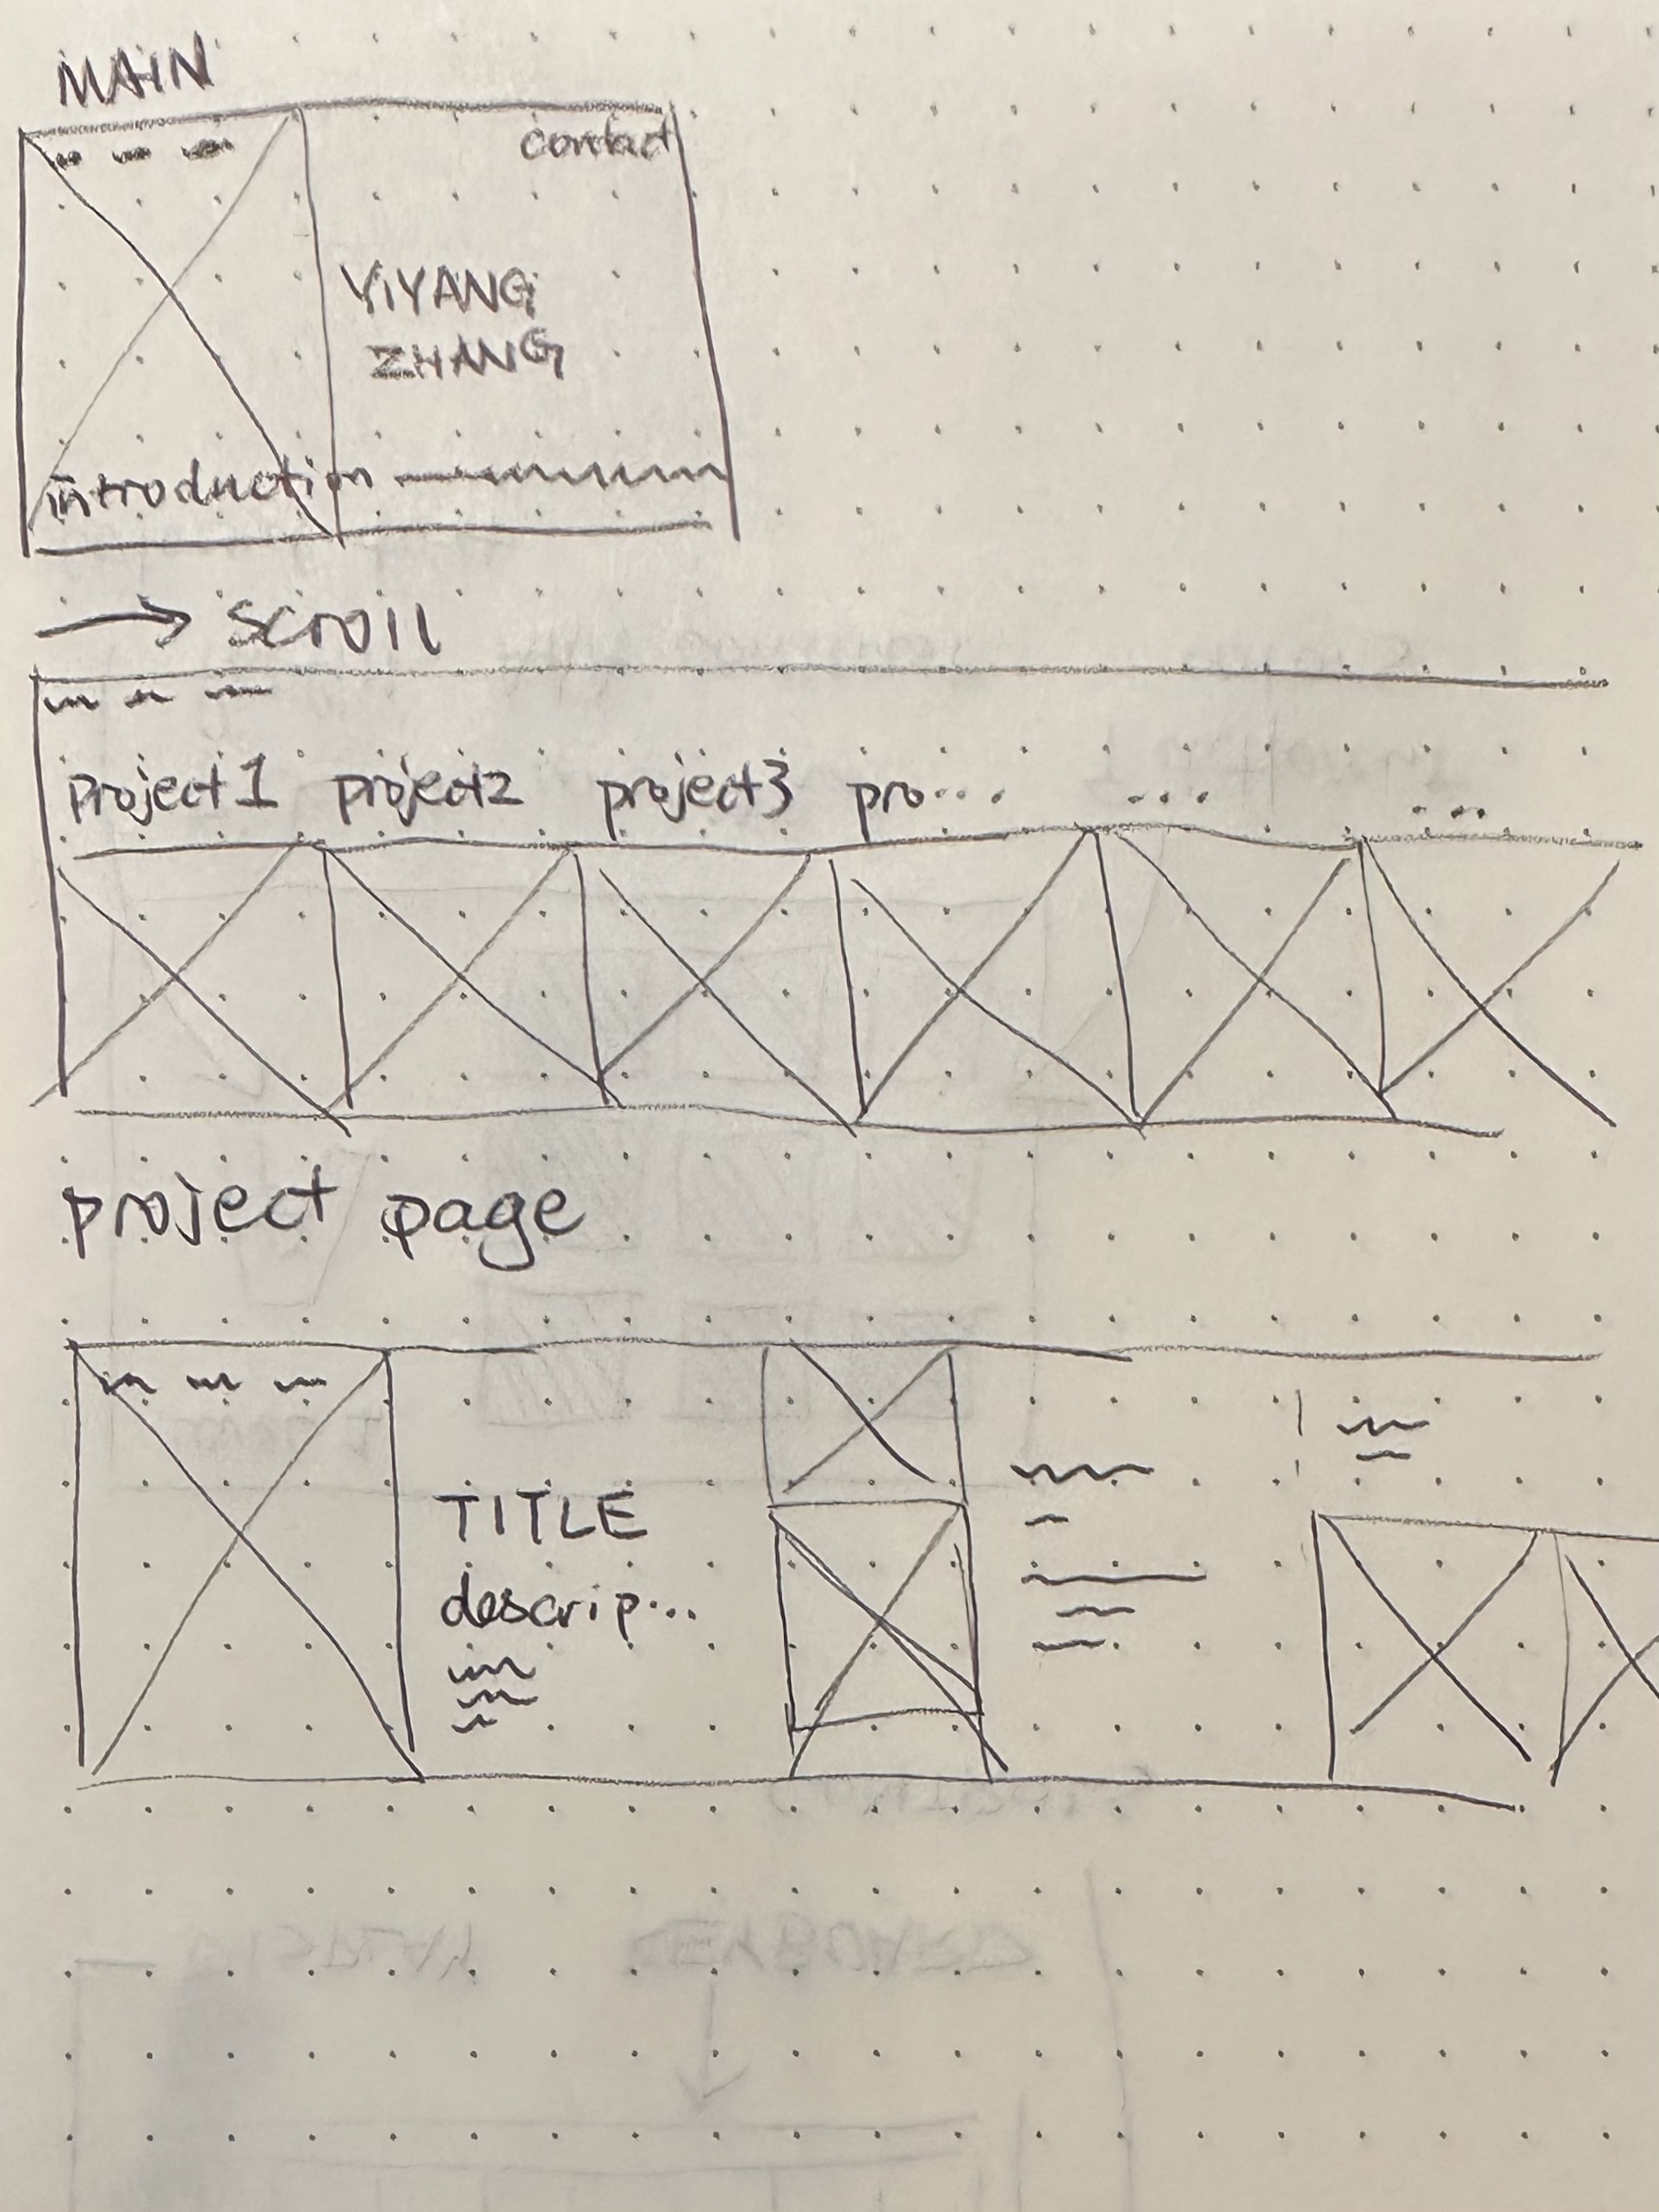 MAIN
contact
YIYANG
ZHANG
introduction
→ scroll
project1 project2 project3 pro... ... ...
project page
TITLE
descrip...